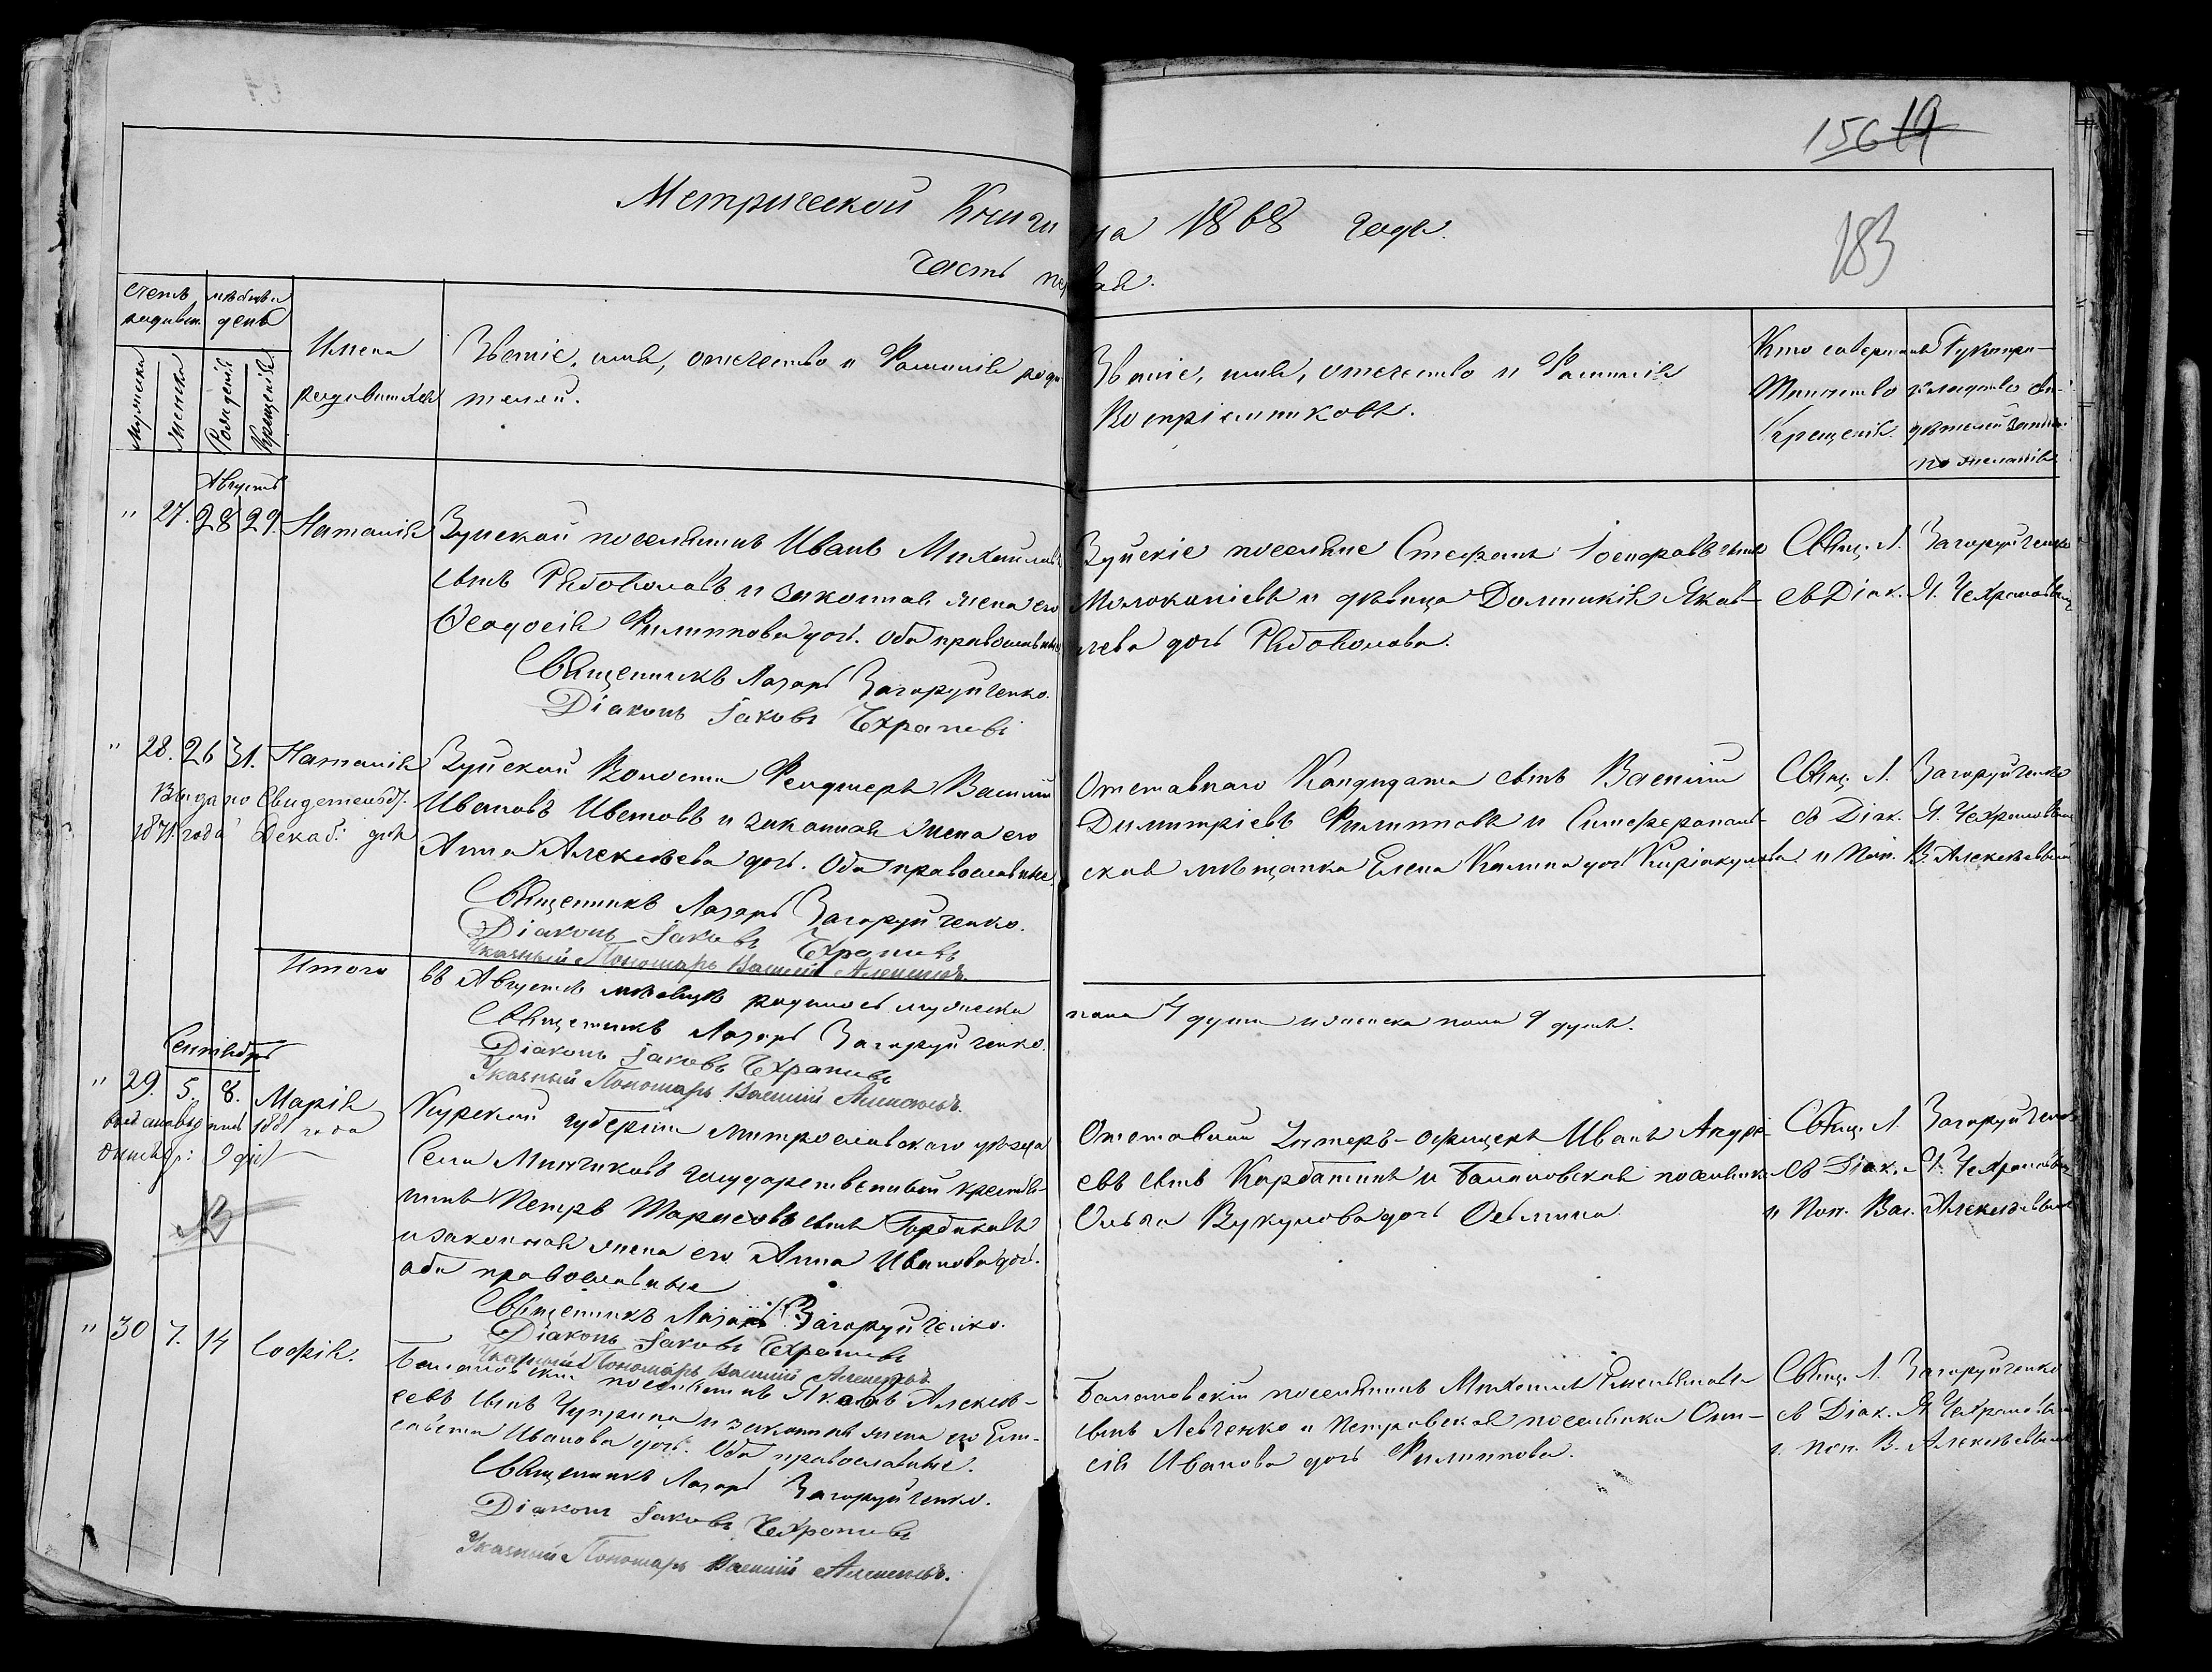 156 19
183
Метрической Книги на 1868 годъ.
Часть первая.
Счетъ родивш.
мѣсяцъ и день
Мужеска
Женска
Рожденія
Крещенія
Имена родившихся
Званіе, имя, отчество и Фамилія роди-
телей.
Званіе, имя, отчество и Фамилія
Воспріемниковъ.
Кто совершалъ
Таинство
Крещенія.
Рукопри-
кладство сви-
дѣтелей записи
по желанію
Августъ
" 27. 28 29. Наталія
Зуйской поселянинъ Иванъ Михайловъ
сынъ Рябоволовъ и законная жена его
Ѳеодосія Филиппова дочь. Оба православные
Священникъ Лазарь Загоруйченко.
Діаконъ Іаковъ Чехрановъ
Зуйскіе поселяне Стефанъ Іосифовъ сынъ
и дѣвица Домникія Яков-
лева дочь Рябоволова.
Свящ. Л. Загоруйченко
съ Діак. Я. Чехрановымъ
" 28. 26 31. Наталія
Выдано Свидетельст.
1871 года Декаб: дня
Зуйской Волости Фельдшеръ Василій
Ивановъ Ивановъ и законная жена его
Анна Алексѣева дочь. Оба православные.
Священникъ Лазарь Загоруйченко.
Діаконъ Іаковъ Чехрановъ
Указный Пономарь Василій Алексѣевъ.
Отставнаго Кандидата сынъ Василій
Димитріевъ Филипповъ и Симферополь-
ская мѣщанка Елена Калина дочь Киріакулова
Свящ. Л. Загоруйченко
съ Діак. Я. Чехрановымъ
и Пон. В. Алексѣевымъ
Итого въ Августѣ мѣсяцѣ родилось мужеска
пола 4 души и женска пола 9 душъ.
Священникъ Лазарь Загоруйченко.
Діаконъ Іаковъ Чехрановъ
Указный Пономарь Василій Алексѣевъ.
Сентябрь
" 29. 5. 8. Марія
1881 года
Октябр: 9 дня
Курской губерніи Митрославскаго уѣзда
Села государственный крестья-
нинъ Петръ Тарасовъ сынъ Горбаковъ
и законная жена его Анна Иванова дочь.
оба православные
Священникъ Лазарь Загоруйченко.
Діаконъ Іаковъ Чехрановъ
Указный Пономарь Василій Алексѣевъ
Отставной Унтеръ-офицеръ Иванъ Андре-
евъ сынъ Карбатинъ и Балановская поселянка
Ольга Вукулова дочь
Свящ. Л. Загоруйченко
съ Діак. Я. Чехрановымъ
и Пон. Вас. Алексѣевымъ
" 30 7. 14 Софія.
Балановскій поселянинъ Яковъ Алексѣ-
евъ сынъ Чуприна и законная жена его Ели-
савета Иванова дочь. Оба православные.
Священникъ Лазарь Загоруйченко.
Діаконъ Іаковъ Чехрановъ
Указный Пономарь Василій Алексѣевъ.
Балановскій поселянинъ Михаилъ Емельяновъ
сынъ Левченко и Петровская поселянка Они-
сія Иванова дочь Филиппова.
Свящ. Л. Загоруйченко
съ Діак. Я. Чехрановымъ
и Пон. В. Алексѣевымъ